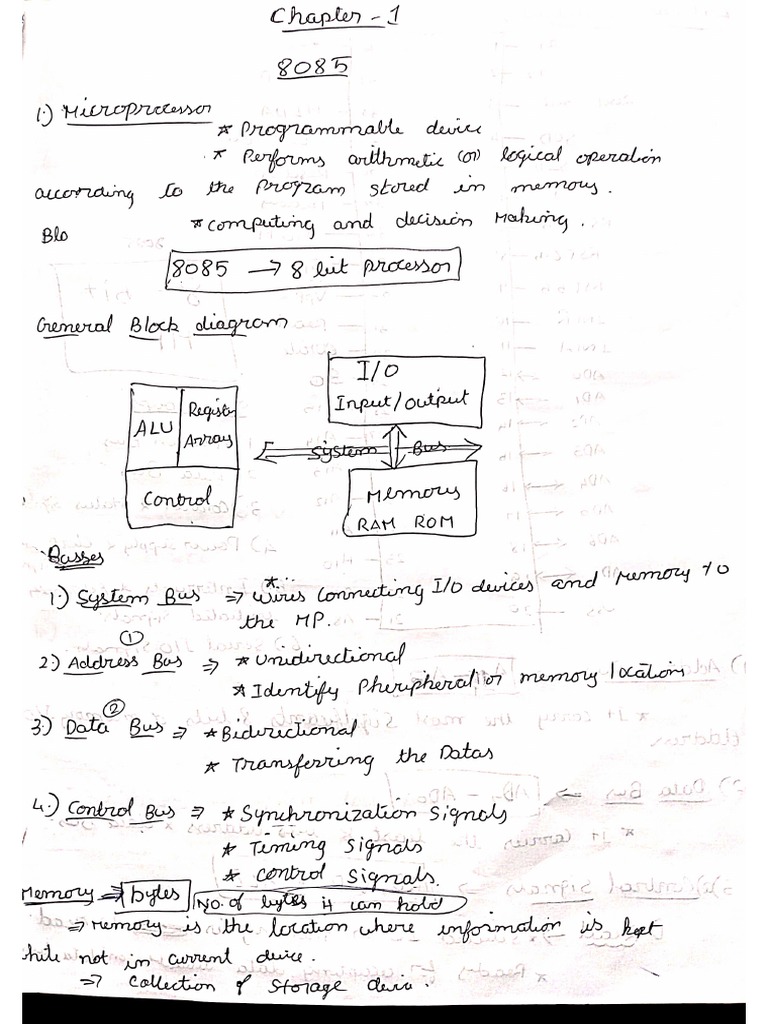 Chapter - 1
8085
1.) Microprocessor
* Programmable device
* Performs arithmetic (or) logical operation
according to the program stored in memory.
Blo * computing and decision Making.
8085 → 8 bit processor
General Block diagram
I/O
Input/output
ALU Register Array
Control
System Bus
Memory
RAM ROM
Busses
1.) System Bus ⇒ * Wires Connecting I/O devices and Memory to
the MP.
①
2.) Address Bus ⇒ * Unidirectional
* Identify Pheripheral or memory locations
②
3.) Data Bus ⇒ * Bidirectional
* Transferring the Datas
4.) Control Bus ⇒ * Synchronization Signals
* Timing Signals
* Control Signals.
Memory ⇒ bytes No. of bytes it can hold
⇒ Memory is the location where information is kept
while not in current device.
⇒ Collection of Storage device.